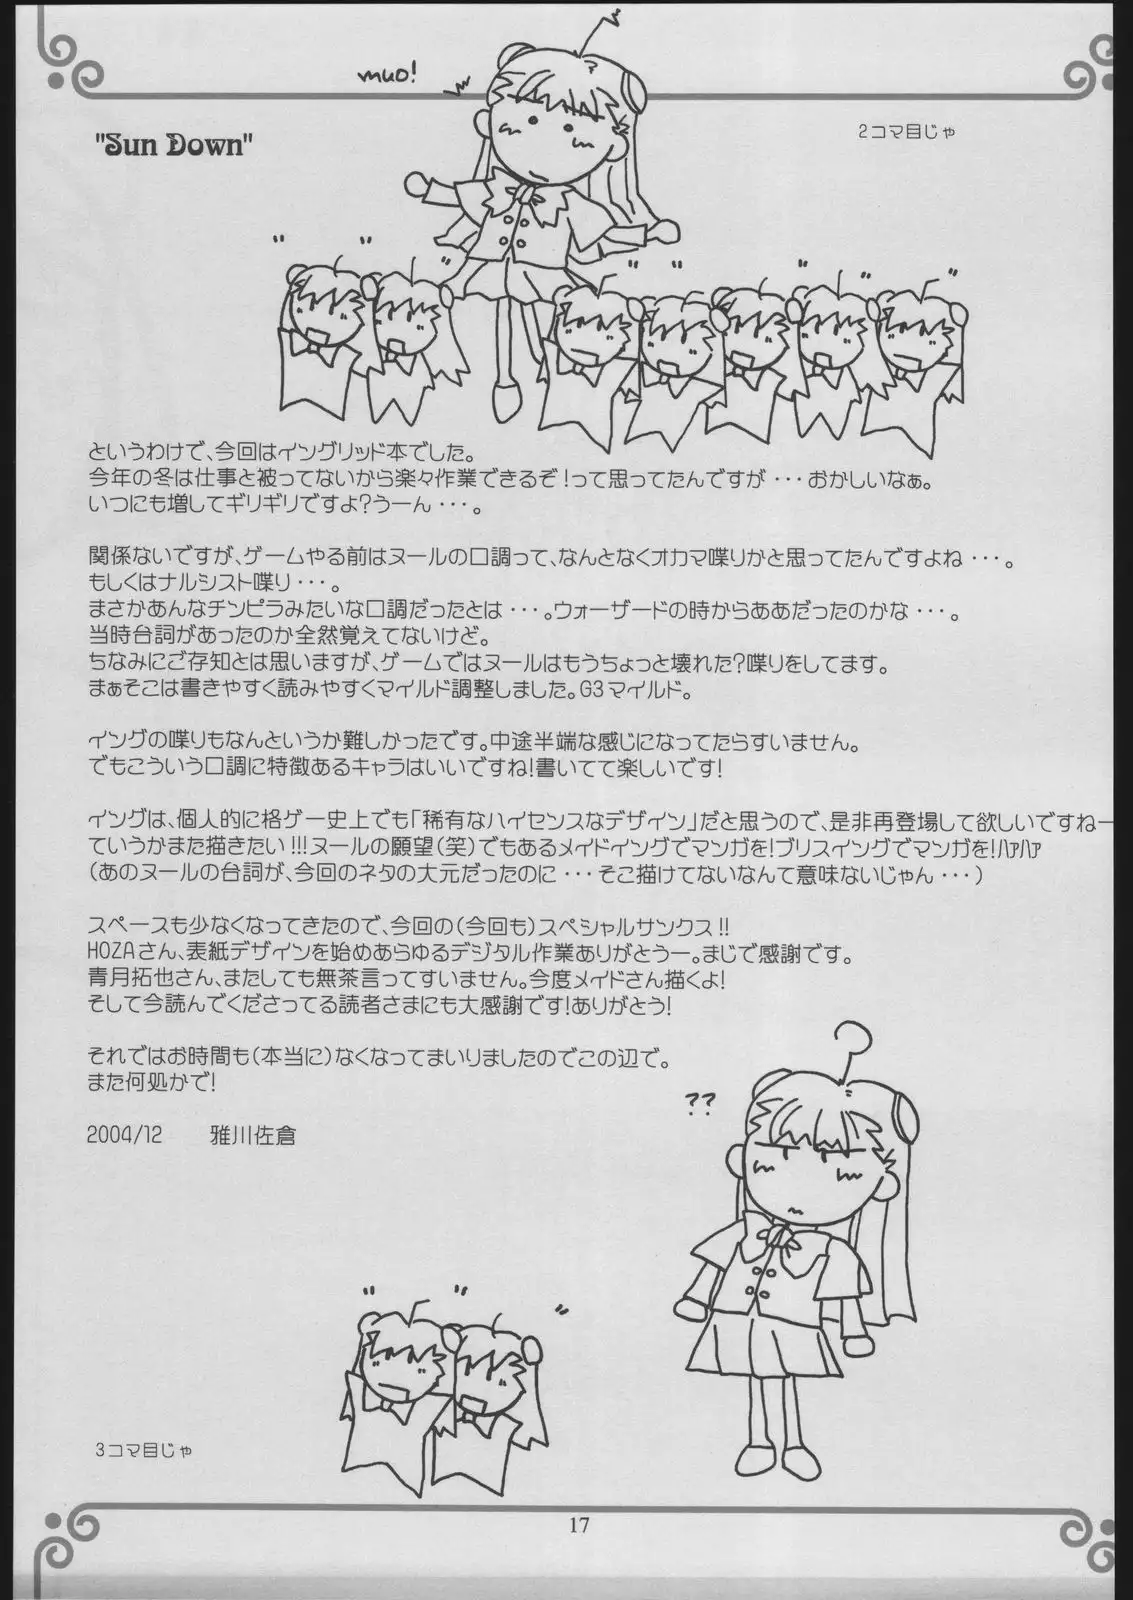 muo!
"Sun Down"
2コマ目じゃ
というわけで、今回はイングリッド本でした。
今年の冬は仕事と被ってないから楽々作業できるぞ!って思ってたんですが・・・おかしいなぁ。
いつにも増してギリギリですよ?うーん・・・。
関係ないですが、ゲームやる前はヌールの口調って、なんとなくオカマ喋りかと思ってたんですよね・・・。
もしくはナルシスト喋り・・・。
まさかあんなチンピラみたいな口調だったとは・・・。ウォーザードの時からああだったのかな・・・。
当時台詞があったのか全然覚えてないけど。
ちなみにご存知とは思いますが、ゲームではヌールはもうちょっと壊れた?喋りをしてます。
まぁそこは書きやすく読みやすくマイルド調整しました。G3マイルド。
イングの喋りもなんというか難しかったです。中途半端な感じになってたらすいません。
でもこういう口調に特徴あるキャラはいいですね!書いてて楽しいです!
イングは、個人的に格ゲー史上でも「稀有なハイセンスなデザイン」だと思うので、是非再登場して欲しいですねー
ていうかまた描きたい!!!ヌールの願望(笑)でもあるメイドイングでマンガを!ブリスイングでマンガを!ハァハァ
(あのヌールの台詞が、今回のネタの大元だったのに・・・そこ描けてないなんて意味ないじゃん・・・)
スペースも少なくなってきたので、今回の(今回も)スペシャルサンクス!!
HOZAさん、表紙デザインを始めあらゆるデジタル作業ありがとうー。まじで感謝です。
青月拓也さん、またしても無茶言ってすいません。今度メイドさん描くよ!
そして今読んでくださってる読者さまにも大感謝です!ありがとう!
それではお時間も(本当に)なくなってまいりましたのでこの辺で。
また何処かで!
2004/12 雅川佐倉
??
3コマ目じゃ
17